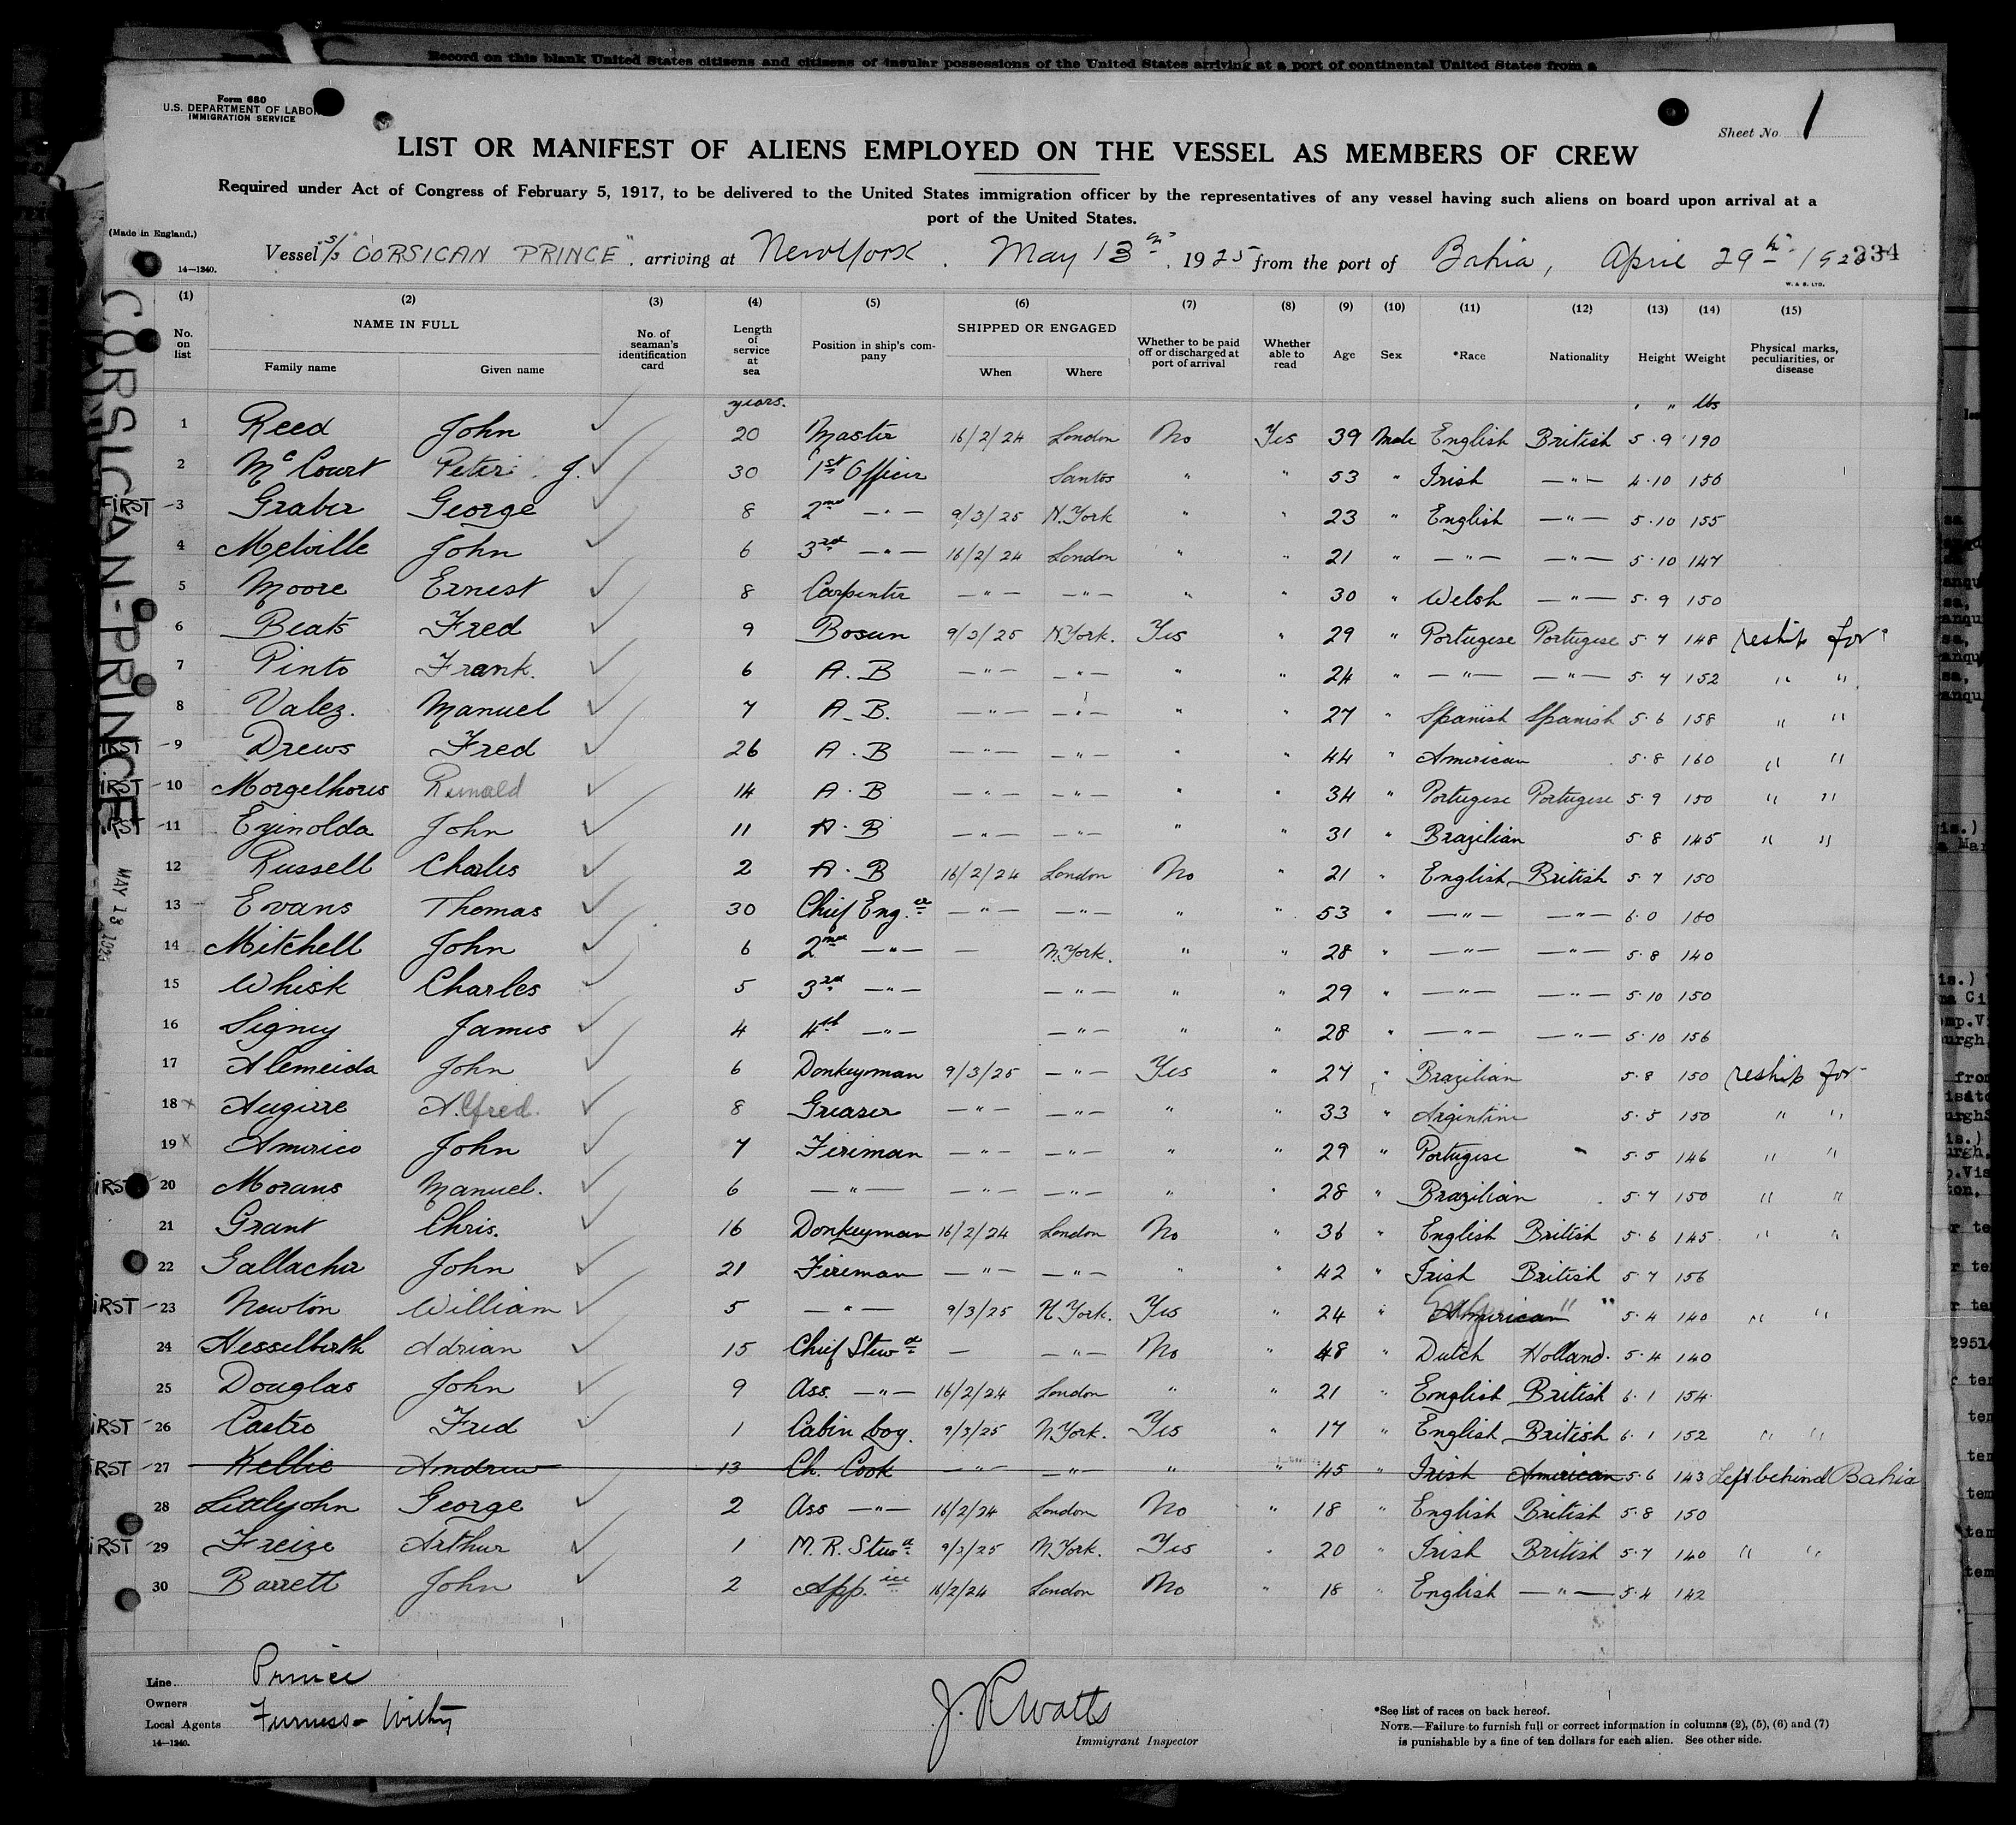 Record on this blank United States citizens and citizens of insular possessions of the United States arriving at a port of continental United States from a
Form 680
U.S. DEPARTMENT OF LABOR
IMMIGRATION SERVICE
Sheet No 1
LIST OR MANIFEST OF ALIENS EMPLOYED ON THE VESSEL AS MEMBERS OF CREW
Required under Act of Congress of February 5, 1917, to be delivered to the United States immigration officer by the representatives of any vessel having such aliens on board upon arrival at a
port of the United States.
(Made in England.)
14—1240.
Vessel S/S "CORSICAN PRINCE", arriving at New York, May 13th, 1925 from the port of Bahia, April 29th 192
234
W. & S. LTD.
CORSICAN-PRINCE
MAY 13 1925
(1) (2) (3) (4) (5) (6) (7) (8) (9) (10) (11) (12) (13) (14) (15)
No. on list NAME IN FULL Family name Given name No. of seaman's identification card Length of service at sea Position in ship's company SHIPPED OR ENGAGED When Where Whether to be paid off or discharged at port of arrival Whether able to read Age Sex *Race Nationality Height Weight Physical marks, peculiarities, or disease
years. ' " lbs
1 Reed John ✓ 20 Master 16/2/24 London No Yes 39 Male English British 5.9 190
2 McCourt Peter J. ✓ 30 1st Officer Santos " " 53 " Irish —"— 4.10 156
FIRST —3 Graber George ✓ 8 2nd —"— 9/3/25 N.York " " 23 " English —"— 5.10 155
4 Melville John ✓ 6 3rd —"— 16/2/24 London " " 21 " —"— —"— 5.10 147
5 Moore Ernest ✓ 8 Carpenter —"— —"— " " 30 " Welsh —"— 5.9 150
6 Beats Fred ✓ 9 Bosun 9/3/25 N.York. Yes " 29 " Portugese Portugese 5.7 148 reship for"
7 Pinto Frank. ✓ 6 A.B —"— —"— " " 24 " —"— —"— 5.7 152 " "
8 Valez. Manuel ✓ 7 A.B. —"— —"— " " 27 " Spanish Spanish 5.6 158 " "
FIRST —9 Drews Fred ✓ 26 A.B —"— —"— " " 44 " American 5.8 160 " "
FIRST —10 Morgelhoues ✓ 14 A.B —"— —"— " " 34 " Portugese Portugese 5.9 150 " "
FIRST —11 Ezinolda John ✓ 11 A.B —"— —"— " " 31 " Brazilian 5.8 145 " "
12 Russell Charles ✓ 2 A.B 16/2/24 London No " 21 " English British 5.7 150
13 Evans Thomas ✓ 30 Chief Eng.er —"— —"— " " 53 " —"— —"— 6.0 160
14 Mitchell John ✓ 6 2nd —"— — N.York. " " 28 " —"— —"— 5.8 140
15 Whisk Charles ✓ 5 3rd —"— —"— " " 29 " —"— —"— 5.10 150
16 Signey James ✓ 4 4th —"— —"— " " 28 " —"— —"— 5.10 156
17 Alemeida John ✓ 6 Donkeyman 9/3/25 —"— Yes " 27 " Brazilian 5.8 150 reship for
18 x Augirre Alfred. ✓ 8 Greaser —"— —"— " " 33 " Argentine 5.5 150 " "
19 x Americo John ✓ 7 Fireman —"— —"— " " 29 " Portugese 5.5 146 " "
FIRST 20 Morans Manuel. ✓ 6 —"— —"— —"— " " 28 " Brazilian 5.7 150 " "
21 Grant Chris. ✓ 16 Donkeyman 16/2/24 London No " 36 " English British 5.6 145 " "
22 Gallacher John ✓ 21 Fireman —"— —"— " " 42 " Irish British 5.7 156
FIRST —23 Newton William ✓ 5 —"— 9/3/25 N.York. Yes " 24 " American " " 5.4 140 " "
24 Hesselberth Adrian ✓ 15 Chief Stewd — —"— No " 48 " Dutch Holland. 5.4 140
25 Douglas John ✓ 9 Ass. —"— 16/2/24 London " " 21 " English British 6.1 154
FIRST —26 Castro Fred ✓ 1 Cabin boy. 9/3/25 N.York. Yes " 17 " English British 6.1 152 " "
FIRST —27 Kellie Andrew 13 Ch. Cook —"— —"— " " 45 " Irish American 5.6 143 Left behind Bahia
28 Littlejohn George ✓ 2 Ass —"— 16/2/24 London No " 18 " English British 5.8 150
FIRST —29 Freize Arthur ✓ 1 M.R. Stewd 9/3/25 N.York. Yes " 20 " Irish British 5.7 140 " "
30 Barrett John ✓ 2 App.ice 16/2/24 London No " 18 " English —"— 5.4 142
Line Prince
Owners
Local Agents Furness-Withy
14—1240.
J. R Watts
Immigrant Inspector
*See list of races on back hereof.
NOTE.—Failure to furnish full or correct information in columns (2), (5), (6) and (7)
is punishable by a fine of ten dollars for each alien. See other side.